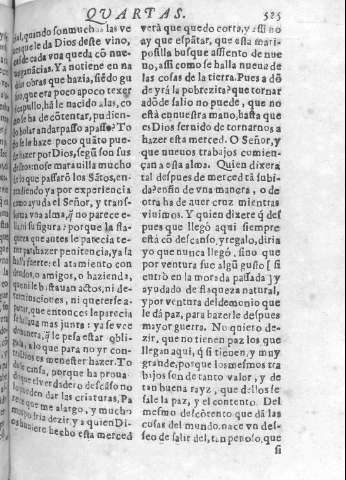 QVARTAS. 525
quando son muchas las ve
que le da Dios deste vino,
de cada vna queda con nue
ganácias. Ya no tiene en na
obras que hazia, siédo gu
que era poco a poco texer
capullo, há le nacido alas, co
se ha de cótentar, pudien
bolar andar passo a passo? To
se le haze poco quáto pue
hazer por Dios, segú son sus
desseos: no se marauilla mucho
de lo que passaró los Sátos, en
tendiendo ya por experiencia
como ayuda el Señor, y trans-
forma vna alma, q̃ no parece e-
lla, ni su figura: porque la fla-
queza que antes le parecia te-
ner para hazer penitencia, ya la
halla fuerte: el atamiento con
deudos, o amigos, o hazienda,
que ni le bastauan actos, ni de-
terminaciones, ni quererse a-
partar, que entonces le parecia
se hallaua mas junta: ya se vee
de manera, q̃ le pesa estar obli-
gada, a lo que para no yr con-
tra Dios es menester hazer. To
do le cansa, porque ha proua-
do que el verdadero descáso no
le pueden dar las criaturas. Pa
rece que me alargo, y mucho
mas podria dezir, y a quien Di-
os huuiere hecho esta merced
verá que quedo corta, y assi no
ay que espátar, que esta mari-
posilla busque assiento de nue
uo, assi como se halla nueua de
las cosas de la tierra. Pues a dó
de yrá la pobrezita? que tornar
adóde salio no puede, que no
está en nuestra mano, hasta que
es Dios seruido de tornarnos a
hazer esta merced. O Señor, y
que nueuos trabajos comien-
çan a esta alma. Quien dixera
tal despues de merced tá subi-
da? en fin de vna manera, o de
otra ha de auer cruz mientras
viuimos. Y quien dixere q̃ des
pues que llegó aqui siempre
está có descanso, y regalo, diria
yo que nunca llegó, sino que
por ventura fue algũ gusto [si
entró en la morada passada] y
ayudado de flaqueza natural,
y por ventura del demonio que
le dá paz, para hazerle despues
mayor guerra. No quiero de-
zir, que no tienen paz los que
llegan aqui, q̃ si tienen, y muy
grande, porque los mesmos tra
bajos son de tanto valor, y de
tan buena rayz, que dellos se
sale la paz, y el contento. Del
mesmo descótento que dá las
cosas del mundo, nace vn des-
seo de salir del, tan penoso, que
si